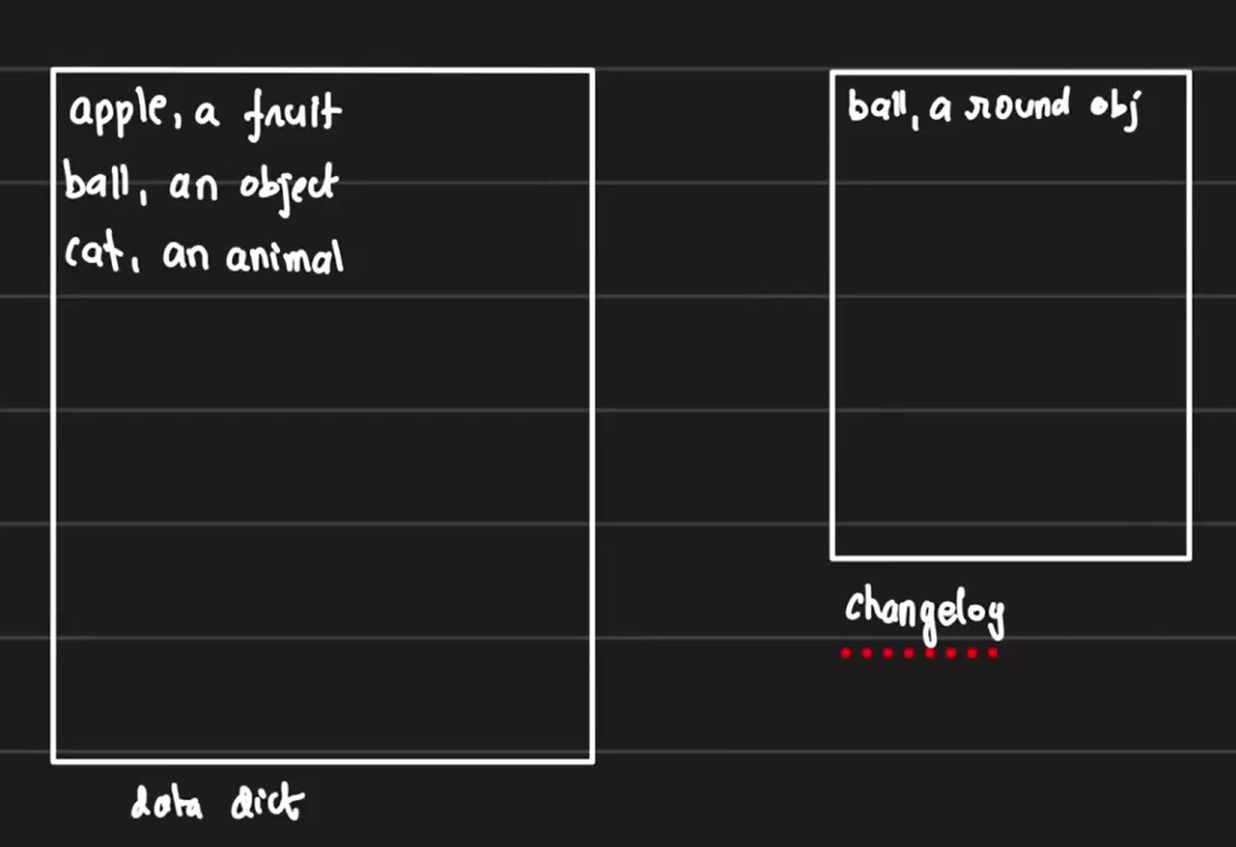 apple, a fruit
ball, an object
cat, an animal
data dict
ball, a round obj
changelog